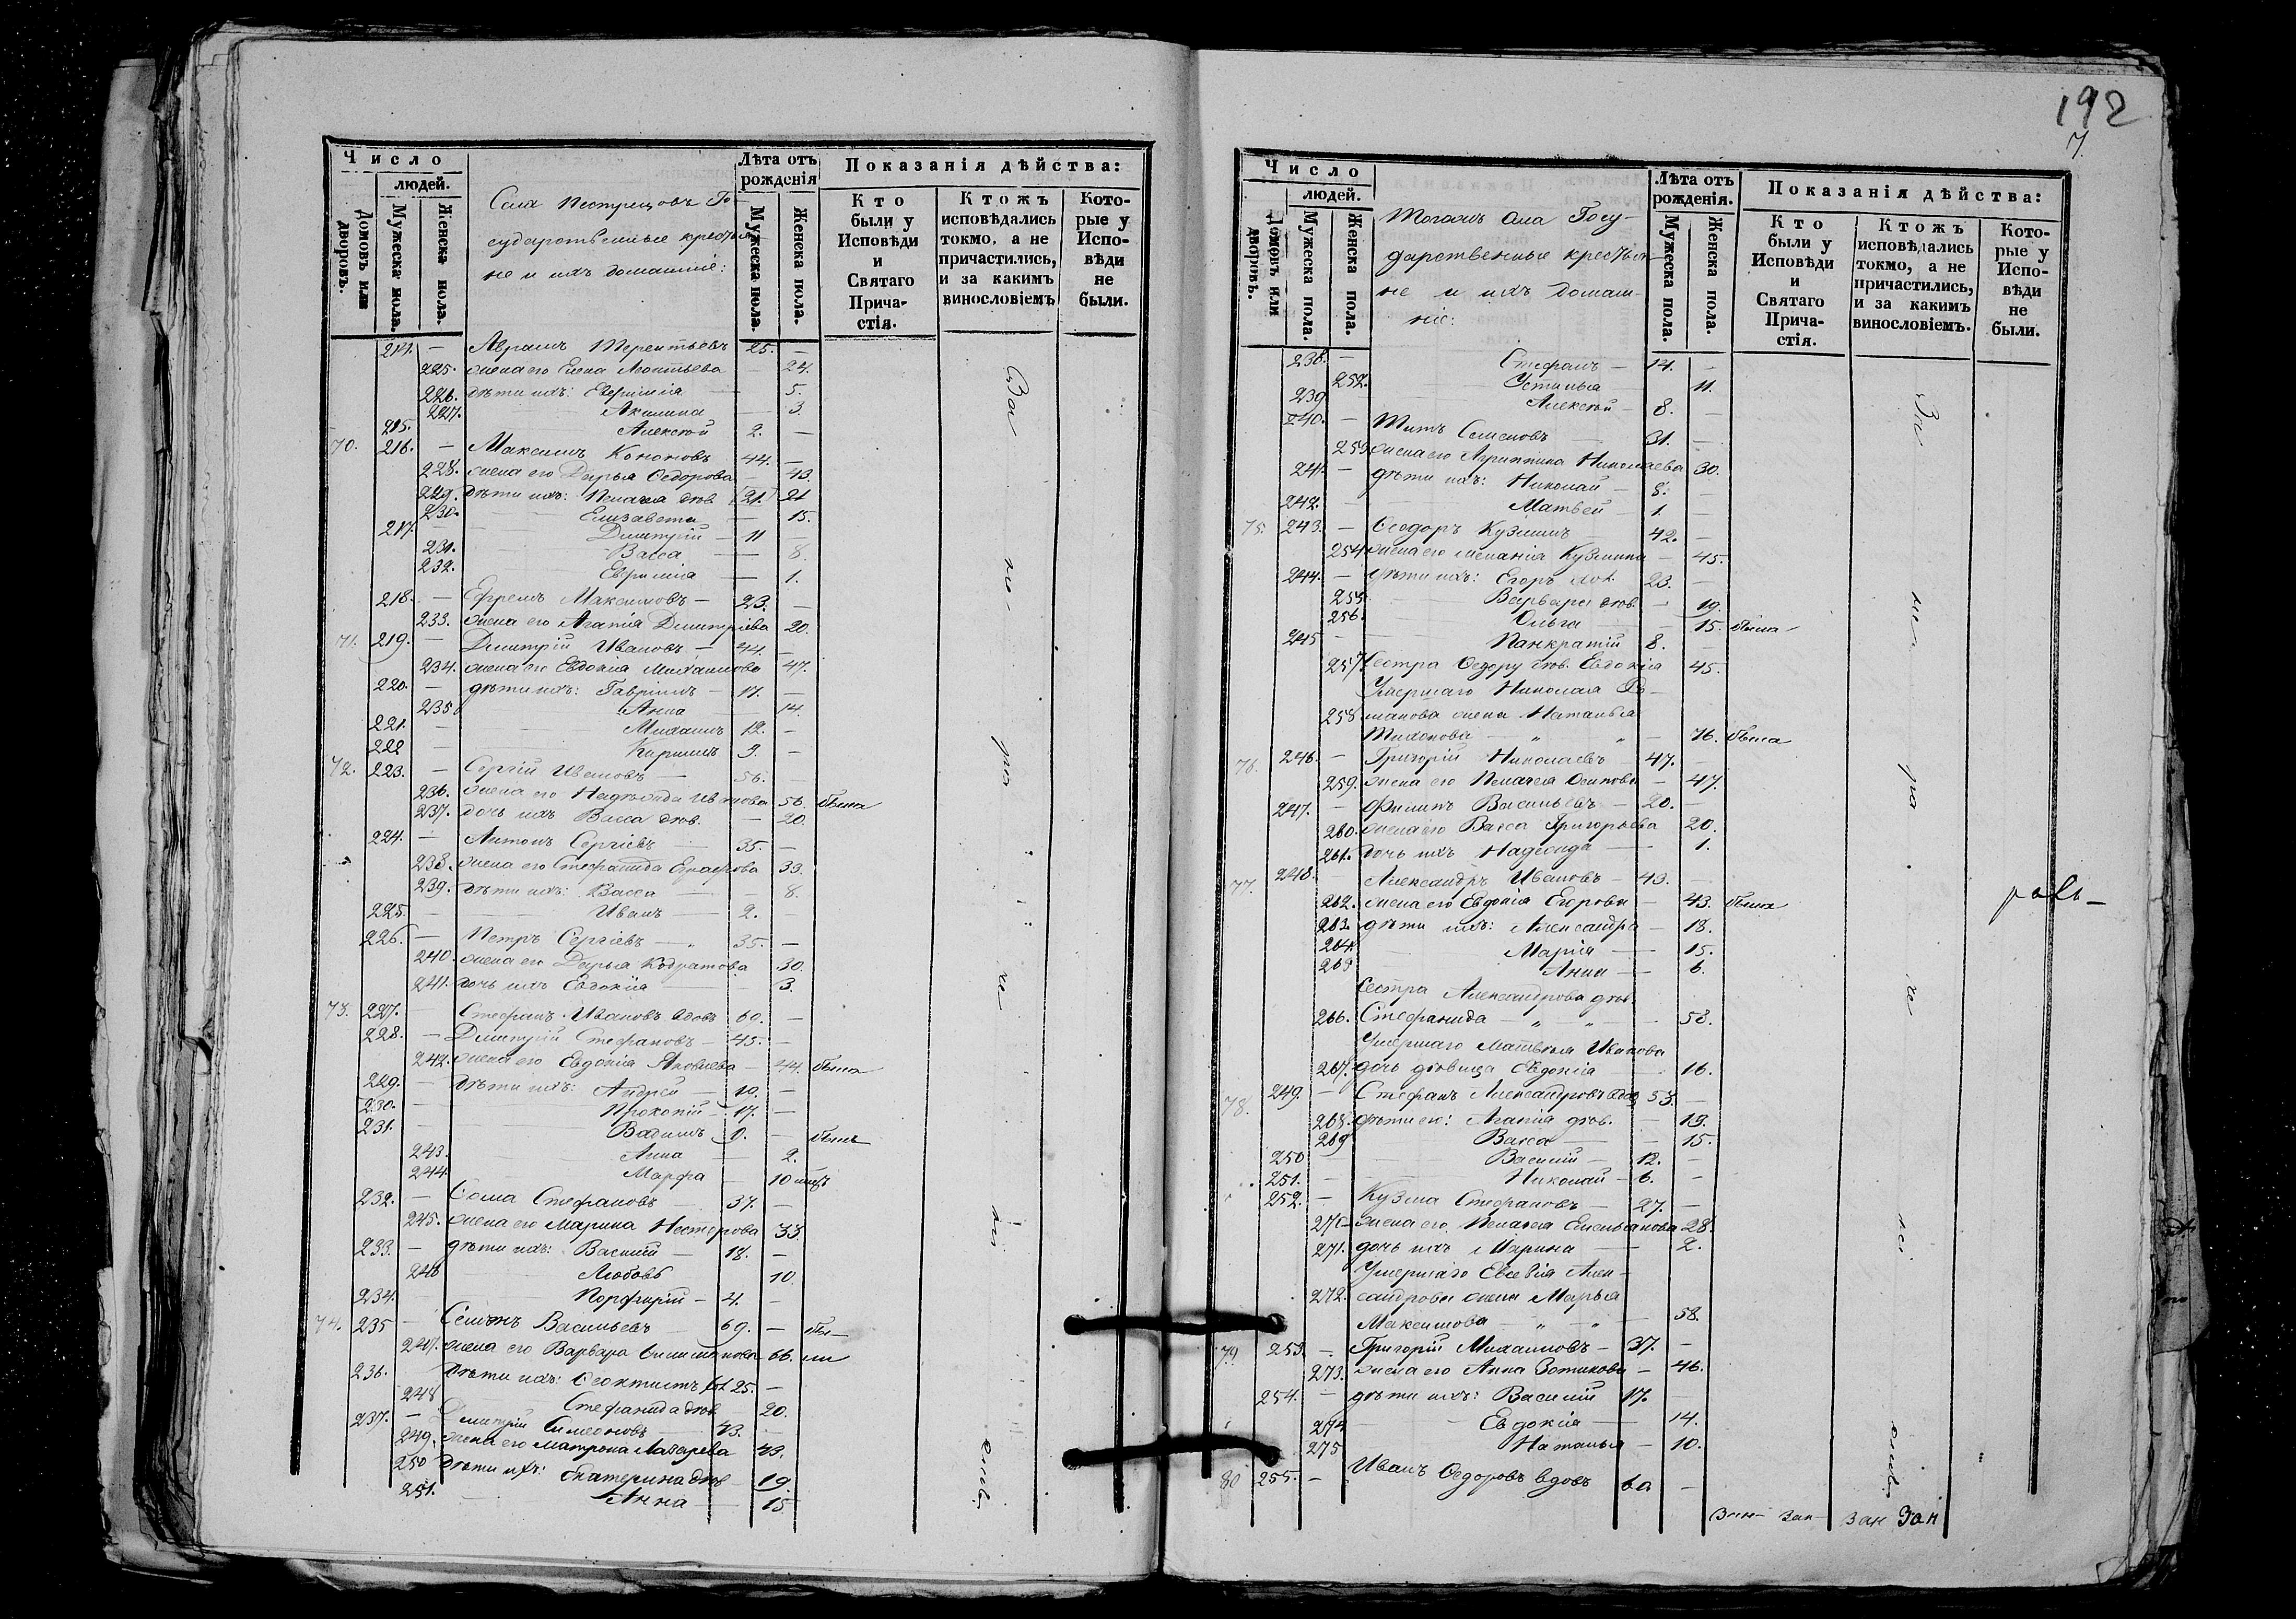 192
7.
Число
людей.
Домовъ или дворовъ.
Мужеска пола.
Женска пола.
Села Пестрецовъ Го-
сударственные крестья-
не и ихъ домашніе:
Лѣта отъ рожденія
Мужеска пола.
Женска пола.
Показанія дѣйства:
Кто были у Исповѣди и Святаго Причастія.
Ктожъ исповѣдались токмо, а не причастились, и за какимъ винословіемъ
Которые у Исповѣди не были.
214. — Аврамъ Терентьевъ 25. —
225. жена его Елена Леонтьева — 24.
226. дѣти ихъ: Евфимія — 5.
227. Акилина — 3.
215. Алексѣй 2. —
70. 216. — Максимъ Кононовъ 44. —
228. жена его Дарья Ѳедорова — 43.
229. дѣти ихъ: Пелагея дѣв. 21. 21
230. Елизавета — 15.
217. Димитрій — 11 —
231. Васса — 8.
232. Евфимія — 1.
218. — Ефремъ Максимовъ — 23. —
233. жена его Агапія Димитріева 20.
71. 219. — Димитрій Ивановъ — 44. —
234. жена его Евдокія Михаилова 47.
220. — дѣти ихъ: Гавріилъ — 17. —
235. Анна — 14.
221. Михаилъ 12. —
222 Кириллъ 9. —
72. 223. — Сергій Ивановъ — 56. —
236. жена его Надежда Иванова 56. была
237. дочь ихъ Васса дѣв. — 20.
224. — Антонъ Сергіевъ 35. —
238. жена его Стефанида Евграфова 33.
239. дѣти ихъ: Васса — 8.
225. — Иванъ — 2.
226. — Петръ Сергіевъ — 35. —
240. жена его Дарья Кодратова 30.
241. дочь ихъ Евдокія 3.
73. 227. — Стефанъ Ивановъ вдовъ 60. —
228. — Димитрій Стефановъ — 45. —
242. жена его Евдокія Яковлева — 44. была
229. — дѣти ихъ: Андрей — 19. —
230. — Прокопій — 17. —
231. — Вадимъ 9. — былъ
243. Анна — 2.
244. Марфа — 10 мѣс.
232. — Ѳома Стефановъ — 37. —
245. жена его Марина Нестерова 33
233. — дѣти ихъ: Василій — 18. —
246 Любовь 10.
234. — Порфирій — 4. —
74. 235 — Семенъ Васильевъ 69. — бы-
247. жена его Варвара 66. ли
236. дѣти ихъ: Ѳеоктистъ 25. —
248 Стефанида дѣв 20.
237. — Димитрій Симеоновъ 43. —
249. жена его Матрона Лазарева 43.
250 дѣти ихъ: Екатерина дѣв — 19.
251. Анна — 15
За
не
ра
Число
людей.
Домовъ или дворовъ.
Мужеска пола.
Женска пола.
Тогожъ села Госу-
дарственные крестья-
не и ихъ домаш-
ніе:
Лѣта отъ рожденія.
Мужеска пола.
Женска пола.
Показанія дѣйства:
Кто были у Исповѣди и Святаго Причастія.
Ктожъ исповѣдались токмо, а не причастились, и за какимъ винословіемъ.
Которые у Исповѣди не были.
238. — Стефанъ — 14. —
252. Устинья 11.
239 Алексѣй — 8. —
240. — Титъ Семеновъ 31. —
253. жена его Агриппина Николаева 30.
241 — дѣти ихъ: Николай — 5. —
242. — Матвей — 1. —
75. 243. — Ѳеодоръ Кузминъ 42. —
254 жена его Меланія Кузмина — 45.
244. — дѣти ихъ: Егоръ хол. 23. —
255. Варвара дѣв. — 19.
256. Ольга 15. была
245 — Панкратій 8. —
257. Сестра Ѳедору дѣв. Евдокія 45.
Умершаго Николая
258. жена Наталья
Тихонова — „ „ — 76. была
76. 246. — Григорій Николаевъ 47. —
259. жена его Пелагея Осипова — 47.
247. — Филипъ Васильевъ — 20. —
260. жена его Васса Григорьева 20.
261. дочь ихъ Надежда — 1.
77. 248. — Александръ Ивановъ — 43. —
262. жена его Евдокія Егорова — 43. была
263. дѣти ихъ: Александра — 18.
264. Марія — 15.
265 Анна — 6.
Сестра Александрова дѣв.
266. Стефанида — „ — „ — 58.
Умершаго Матвѣя Иванова
267. дочь дѣвица Евдокія — 16.
78. 249. — Стефанъ Александровъ вдов 53. —
268. дѣти его: Агапія дѣв. — 19.
269 Васса — 15.
250 — Василій — 12. —
251. — Николай — 6. —
252. — Кузма Стефановъ — 27. —
270 жена его Пелагея Емельянова 28.
271. дочь ихъ Марина — 2.
Умершаго Евсевія Алек-
272. сандрова жена Марья
Максимова — „ — „ — 58.
79. 253. — Григорій Михаиловъ — 37. —
273. жена его Анна Зотикова — 46.
254. — дѣти ихъ: Василій 17. —
274 Евдокія — 14.
275 Наталья — 10.
80 255. — Иванъ Ѳедоровъ вдовъ 60 —